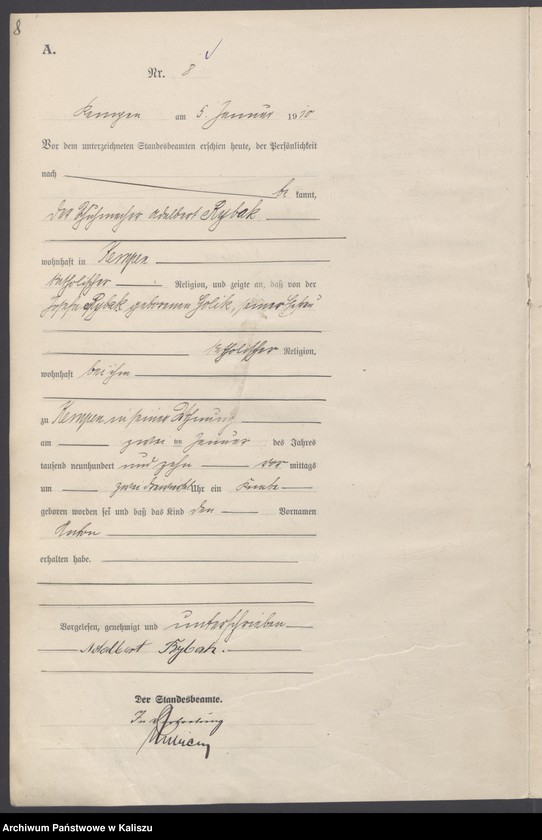 8
A.
Nr. 8
Kempen am 5. Januar 1910
Vor dem unterzeichneten Standesbeamten erschien heute, der Persönlichkeit
nach be kannt,
der Schuhmacher Adalbert Rybak
wohnhaft in Kempen
katholischer Religion, und zeigte an, daß von der
Josefa Rybak geborenen Holik, seiner Ehefrau
katholischer Religion,
wohnhaft bei ihm
zu Kempen in seiner Wohnung
am zwei ten Januar des Jahres
tausend neunhundert und zehn vor mittags
um zwei Uhr ein Knabe
geboren worden sei und daß das Kind den Vornamen
Anton
erhalten habe.
Vorgelesen, genehmigt und unterschrieben
Adalbert Rybak.
Der Standesbeamte.
In Vertretung
Archiwum Państwowe w Kaliszu